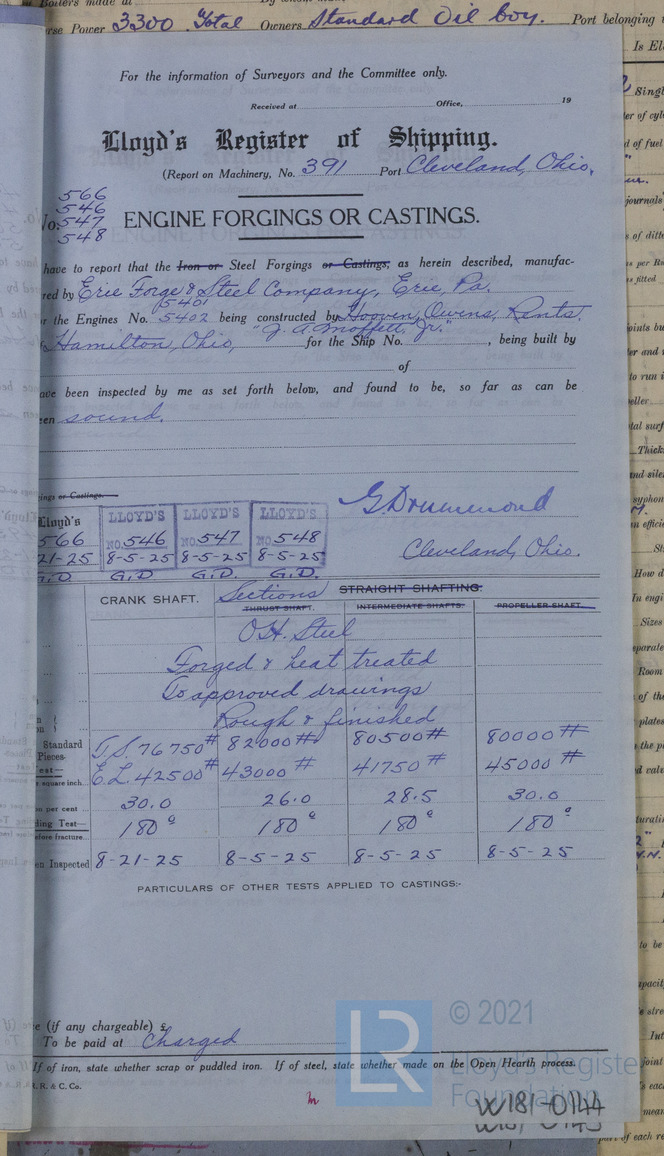 3300 Total Owners Standard Oil Coy. Port belonging
For the information of Surveyors and the Committee only.
Received at Office, 19
Lloyd's Register of Shipping.
(Report on Machinery, No. 391 Port Cleveland, Ohio.
566
546
No. 547
548
ENGINE FORGINGS OR CASTINGS.
have to report that the Iron or Steel Forgings or Castings, as herein described, manufac-
red by Erie Forge & Steel Company, Erie, Pa.
5401
the Engines No. 5402 being constructed by Hooven, Owens, Rents.
"J. A. Moffett, Jr."
Hamilton, Ohio, for the Ship No. , being built by
of
have been inspected by me as set forth below, and found to be, so far as can be
en sound.
ings or Castings.
G. Drummond
Cleveland, Ohio.
Lloyd's LLOYD'S LLOYD'S LLOYD'S
566 No. 546 No. 547 No. 548
21-25 8-5-25 8-5-25 8-5-25
G.D G.D. G.D. G.D.
CRANK SHAFT. Sections STRAIGHT SHAFTING.
THRUST SHAFT. INTERMEDIATE SHAFTS. PROPELLER SHAFT.
O.H. Steel
Forged & heat treated
To approved drawings
Rough & finished
Standard T.S. 76750# 82000# 80500# 80000#
Pieces
Test— E.L. 42500# 43000# 41750# 45000#
square inch
per cent 30.0 26.0 28.5 30.0
ding Test— 180° 180° 180° 180°
before fracture
on Inspected 8-21-25 8-5-25 8-5-25 8-5-25
PARTICULARS OF OTHER TESTS APPLIED TO CASTINGS:-
e (if any chargeable) £
To be paid at Charged
If of iron, state whether scrap or puddled iron. If of steel, state whether made on the Open Hearth process.
R. & C. Co.
LR
© 2021
Lloyd's Register
Foundation
W181-0144